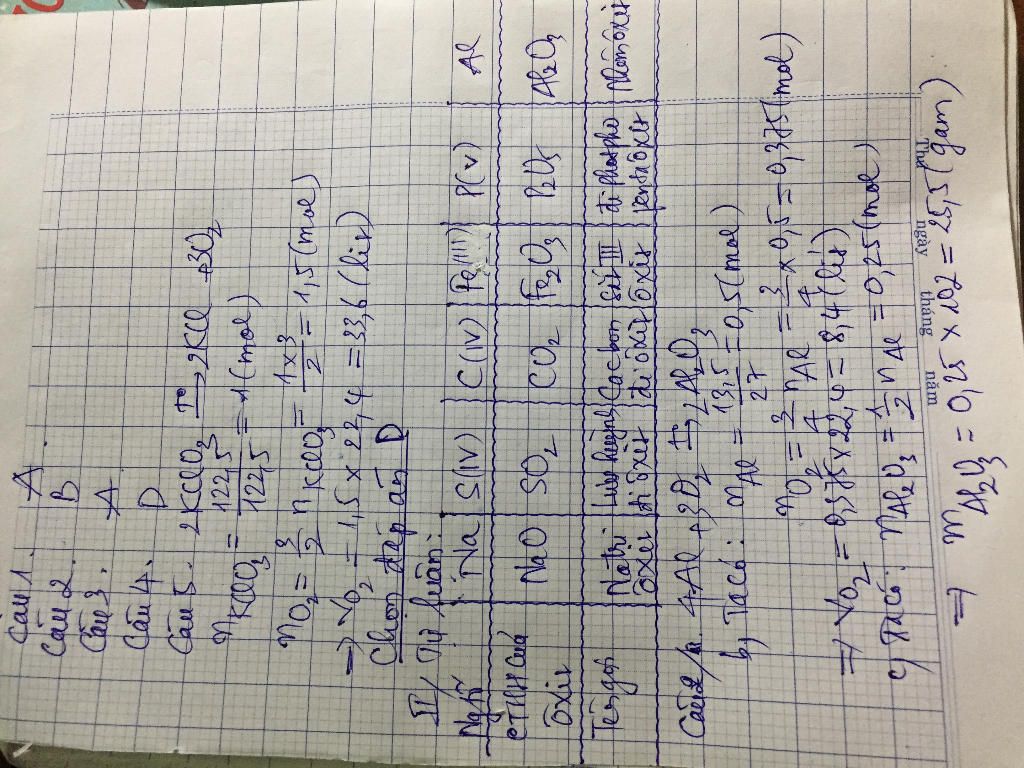 Câu 1. A.
Câu 2. B
Câu 3. A
Câu 4. D
Câu 5. 2KClO3 t° → 2KCl + 3O2
nKClO3 = 122,5/122,5 = 1 (mol)
nO2 = 3/2 nKClO3 = 1x3/2 = 1,5 (mol)
=> VO2 = 1,5 x 22,4 = 33,6 (lít)
Chọn đáp án D
II/ Tự luận:
Ng/tố Na S(IV) C(IV) Fe(III) P(V) Al
CTHH của oxit NaO SO2 CO2 Fe2O3 P2O5 Al2O3
Tên gọi Natri oxit Lưu huỳnh đi oxit Cacbon đi oxit Sắt III oxit đi photpho penta oxit Nhôm oxit
Câu 2/a. 4Al + 3O2 t° → 2Al2O3
b, Ta có: mAl = 13,5/27 = 0,5 (mol)
nO2 = 3/4 nAl = 3/4 x 0,5 = 0,375 (mol)
=> VO2 = 0,375 x 22,4 = 8,4 (lít)
c, Ta có: nAl2O3 = 1/2 nAl = 0,25 (mol)
Thứ ngày tháng năm
=> mAl2O3 = 0,25 x 102 = 25,5 (gam)